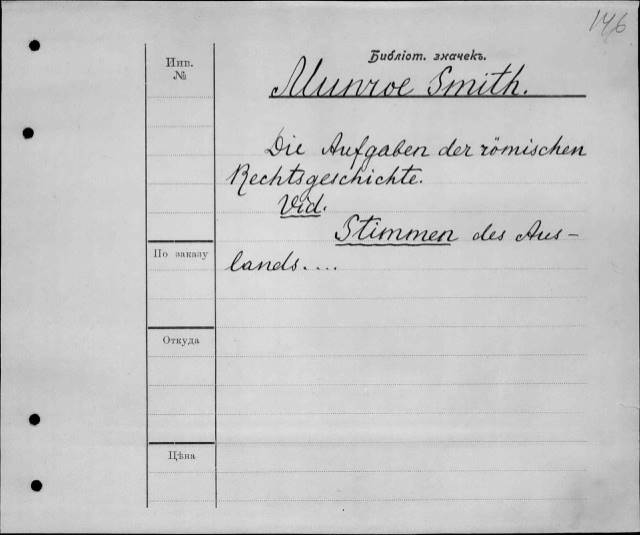 146
Библіот. значекъ.
Инв.
№
Munroe Smith.
Die Aufgaben der römischen
Rechtsgeschichte.
Vid.
Stimmen des Aus-
lands....
По заказу
Откуда
Цѣна